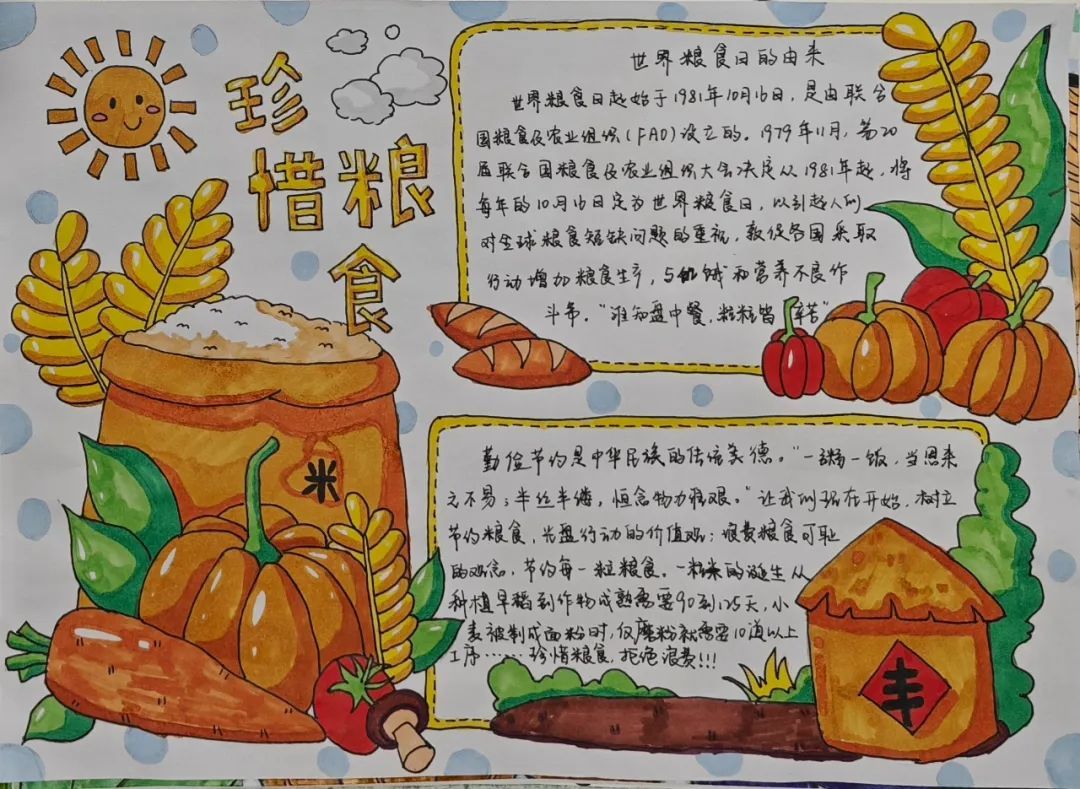 珍惜粮食
世界粮食日的由来
世界粮食日起始于1981年10月16日，是由联合
国粮食及农业组织(FAO)设立的。1979年11月，第20
届联合国粮食及农业组织大会决定从1981年起，将
每年的10月16日定为世界粮食日，以引起人们
对全球粮食短缺问题的重视，敦促各国采取
行动增加粮食生产，与饥饿和营养不良作
斗争。“谁知盘中餐，粒粒皆辛苦”
勤俭节约是中华民族的传统美德。“一粥一饭，当思来
之不易；半丝半缕，恒念物力维艰。”让我们现在开始，树立
节约粮食，光盘行动的价值观；浪费粮食可耻
的观念，节约每一粒粮食。一粒米的诞生从
种植早稻到作物成熟需要90到125天，小
麦被制成面粉时，仅磨粉就需要10道以上
工序……珍惜粮食，拒绝浪费!!!
米
丰